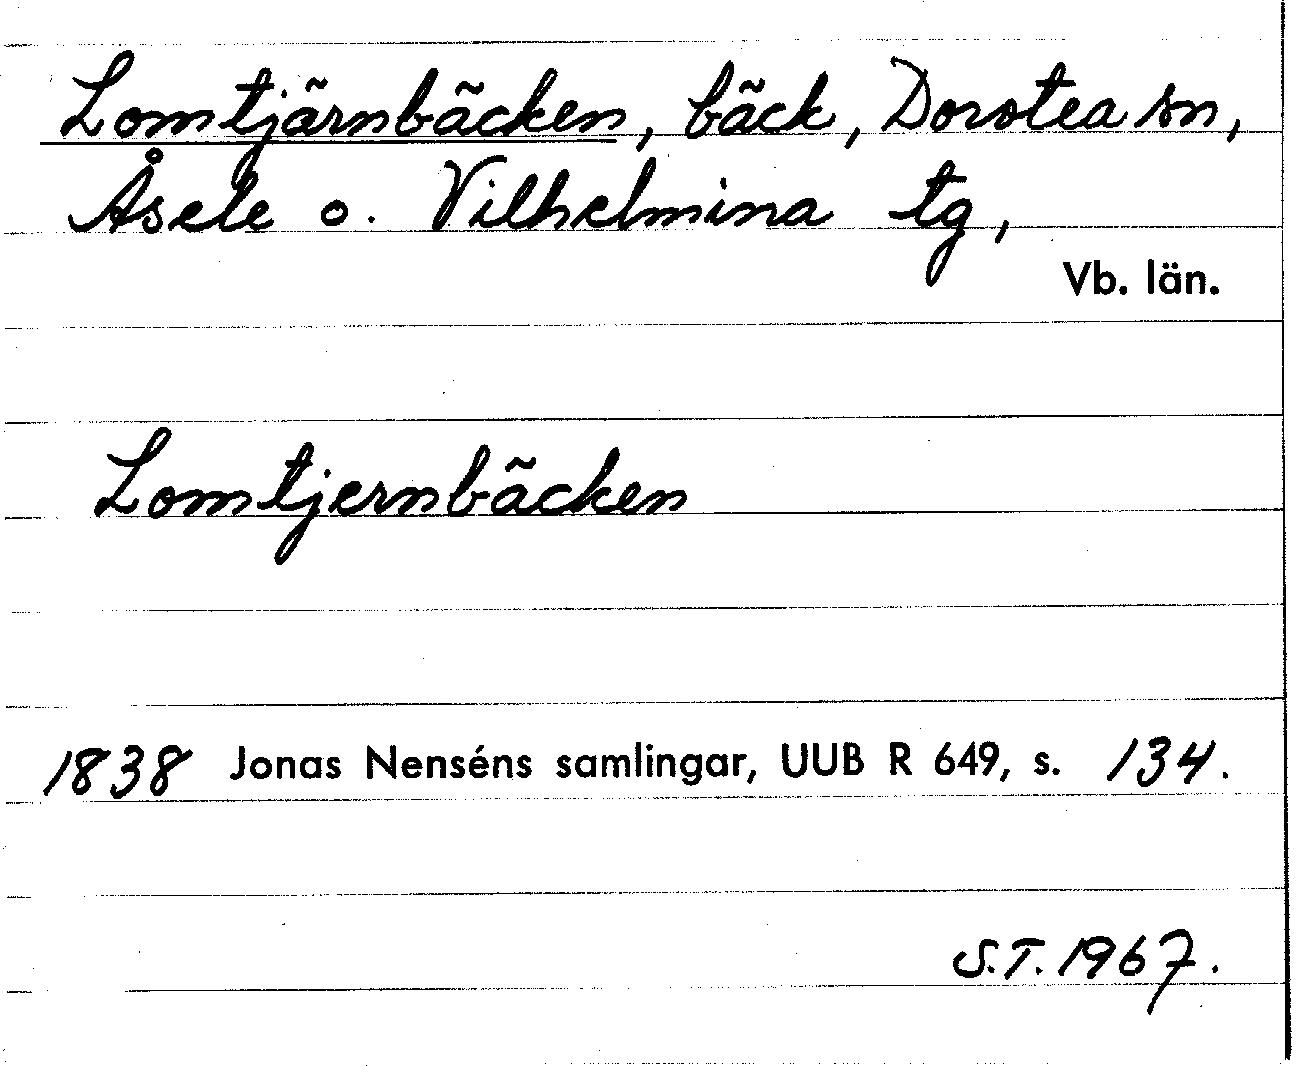 Lomtjärnbäcken, bäck, Dorotea sn,
Åsele o. Vilhelmina tg,
Vb. län.
Lomtjernbäcken
1838 Jonas Nenséns samlingar, UUB R 649, s. 134.
S.T. 1967.